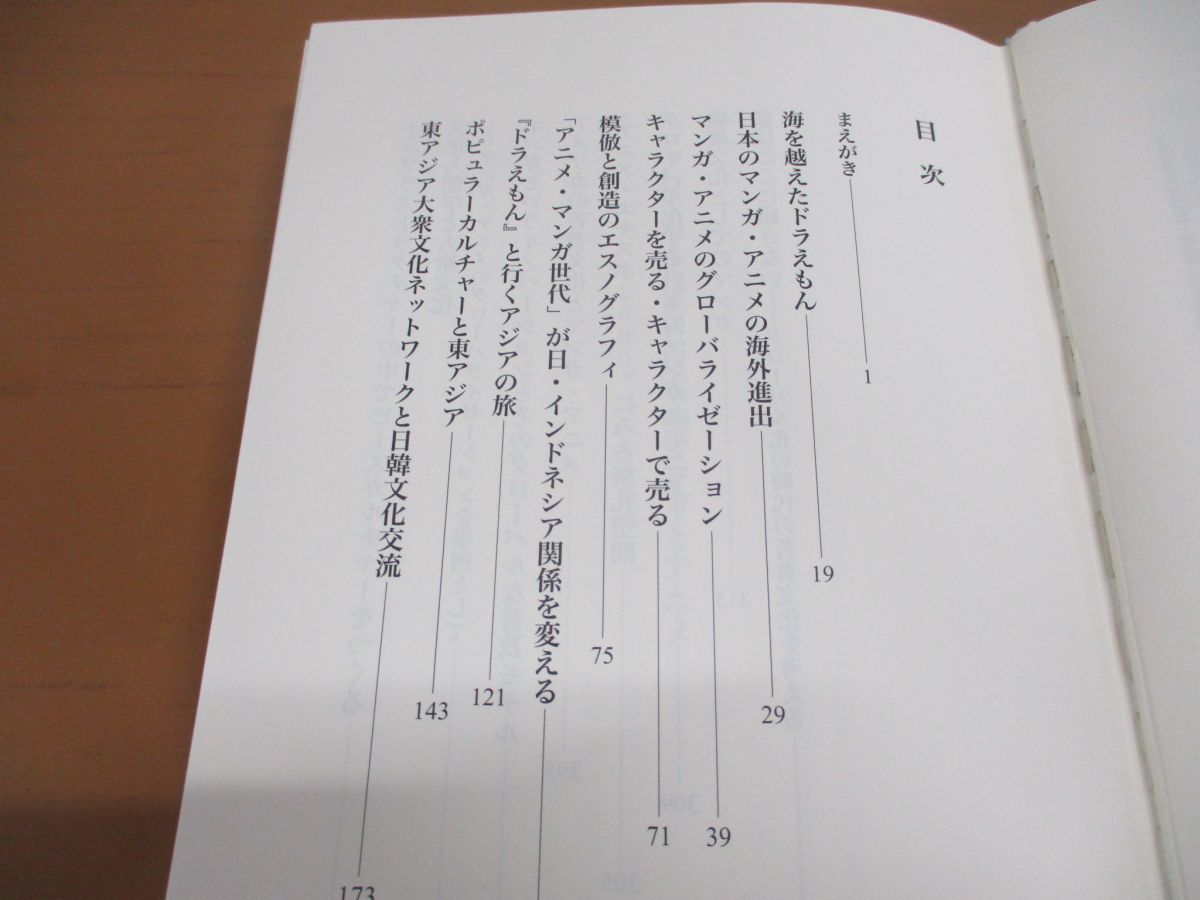 目次
まえがき 1
海を越えたドラえもん 19
日本のマンガ・アニメの海外進出 29
マンガ・アニメのグローバライゼーション 39
キャラクターを売る・キャラクターで売る 71
模倣と創造のエスノグラフィ 75
「アニメ・マンガ世代」が日・インドネシア関係を変える
『ドラえもん』と行くアジアの旅 121
ポピュラーカルチャーと東アジア 143
東アジア大衆文化ネットワークと日韓文化交流 173